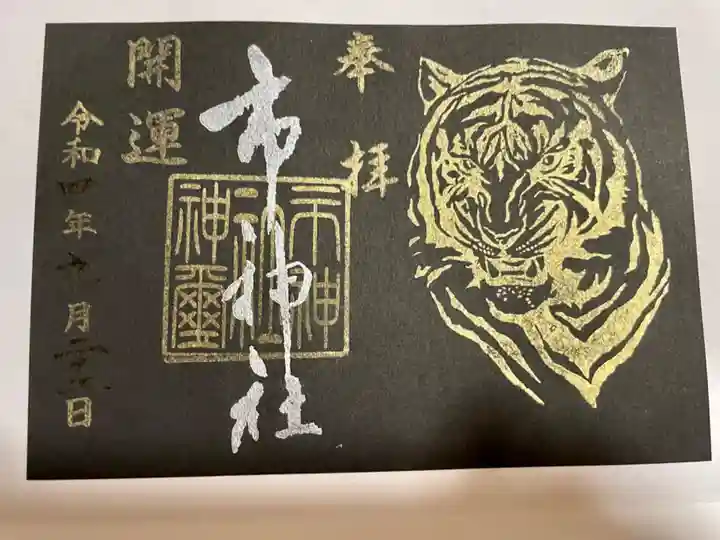 奉拝
市神社
市神
神璽
開運
令和四年 月 日